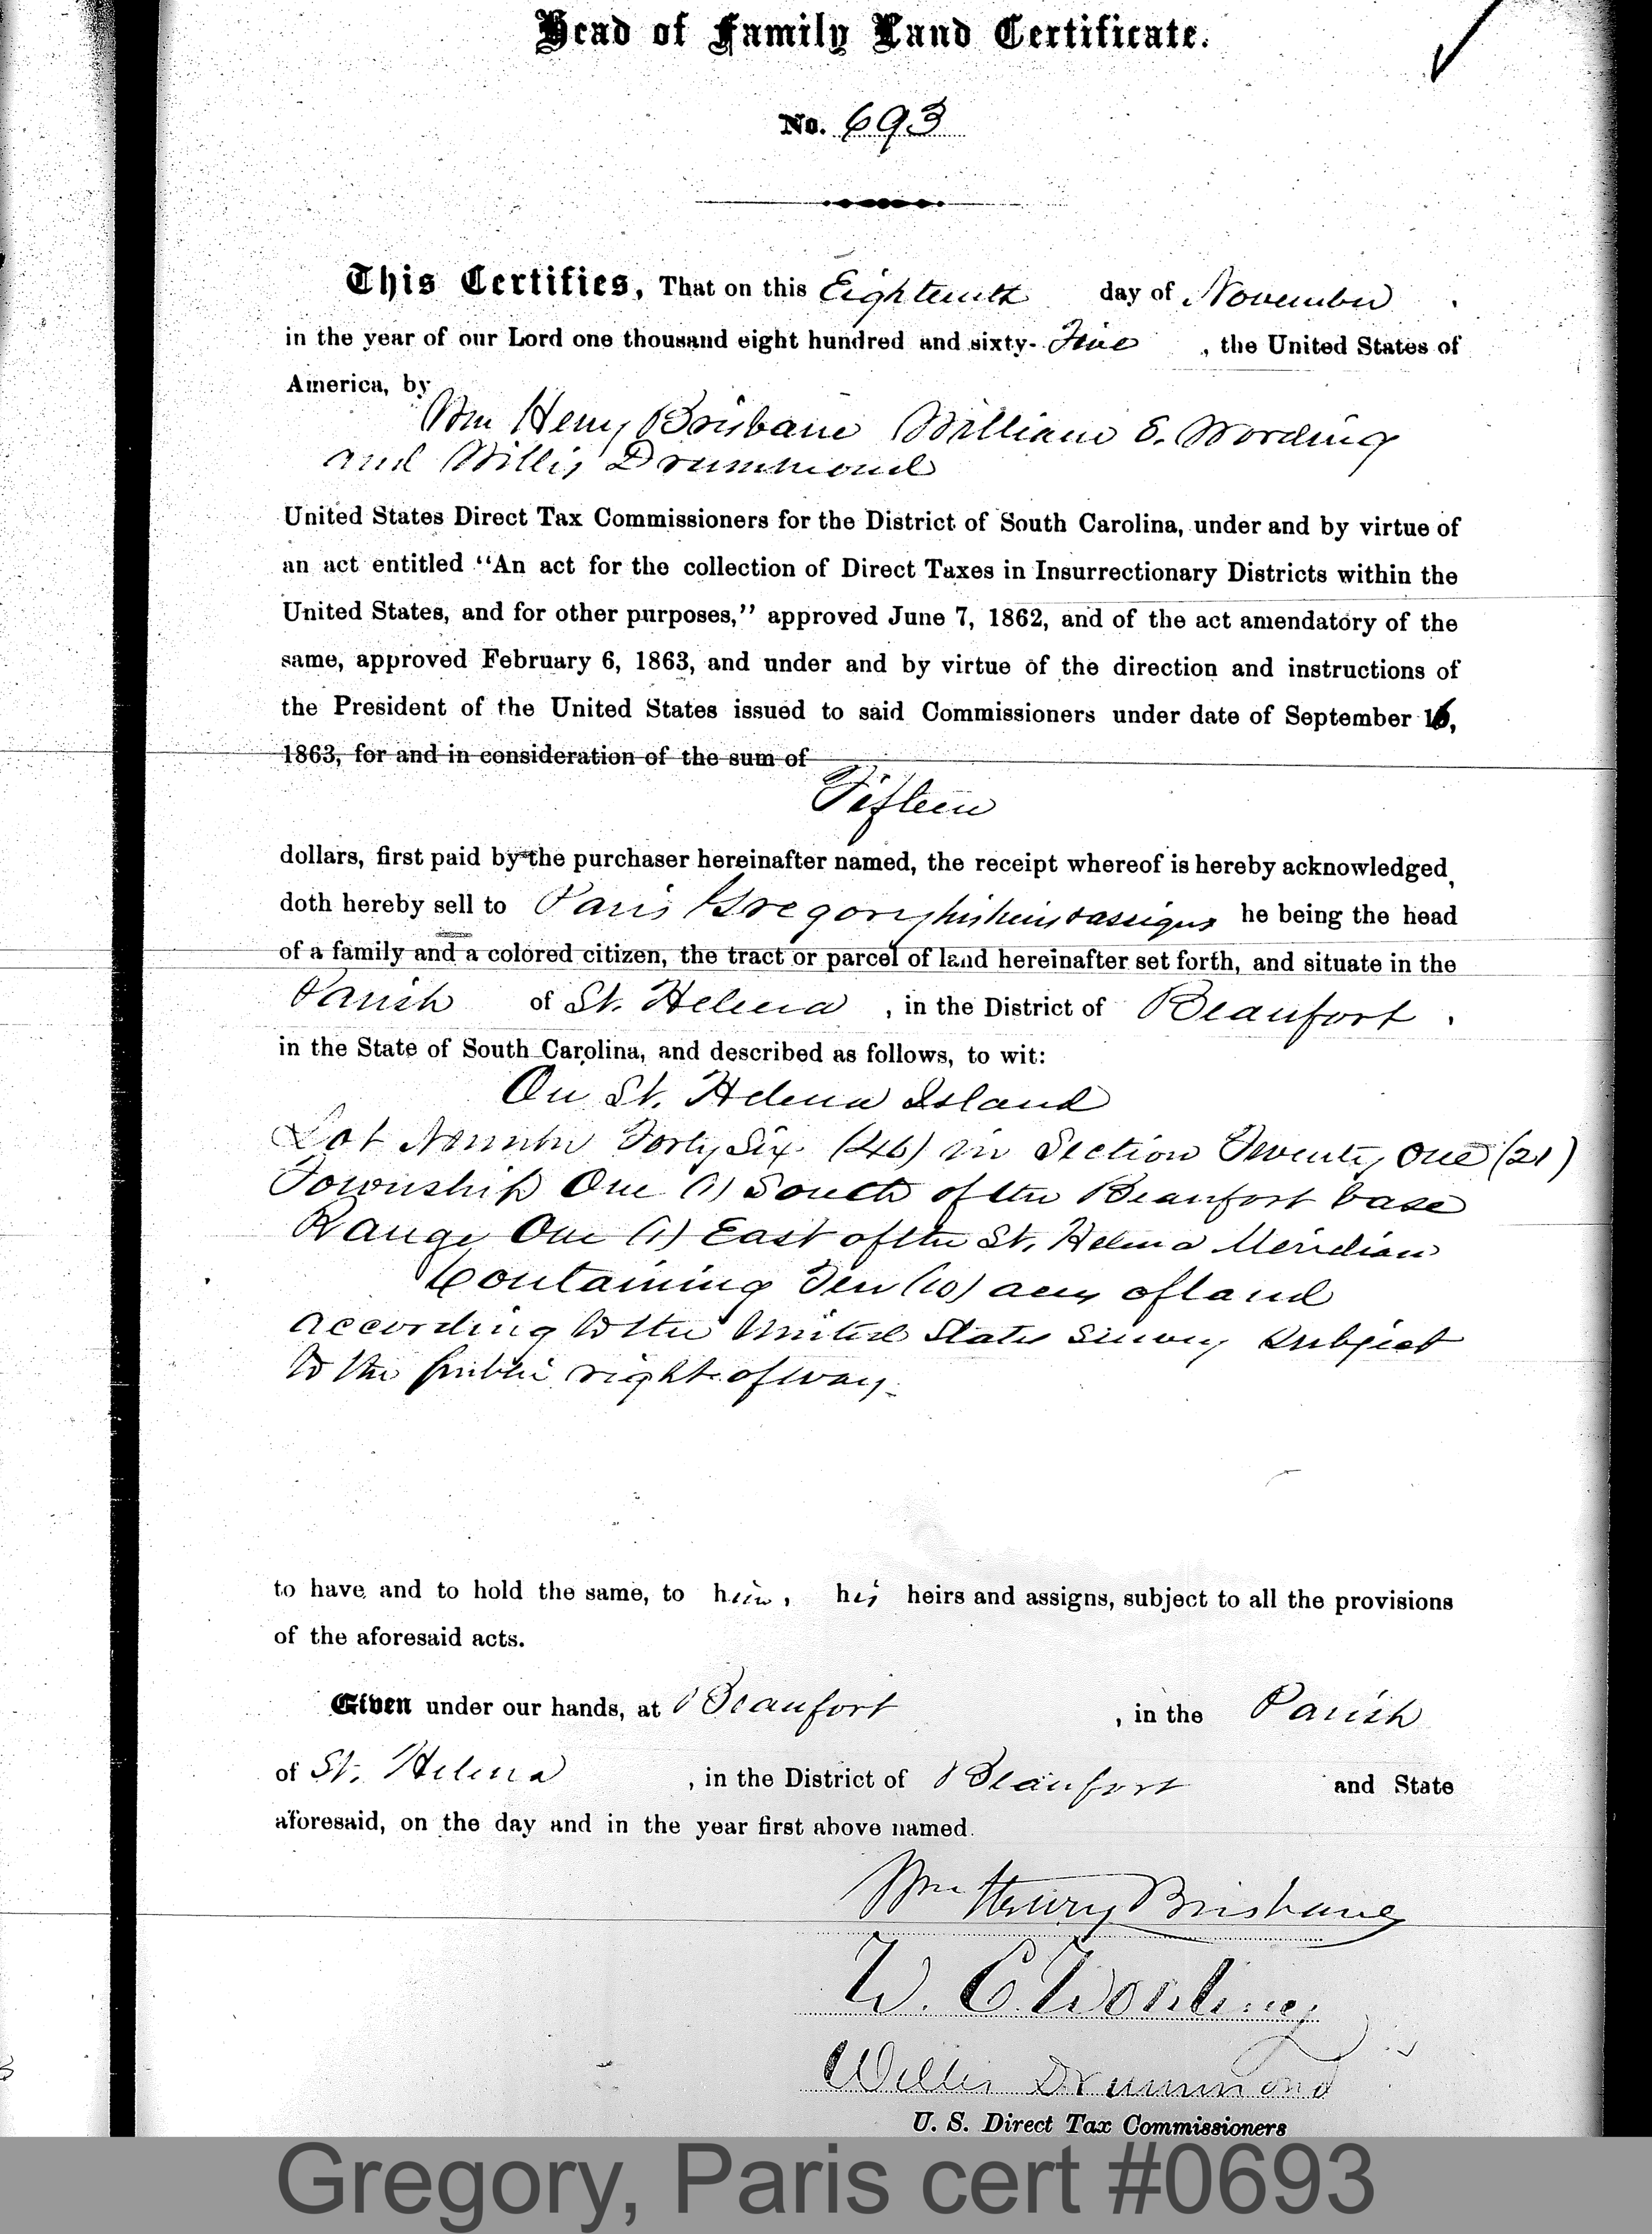 Head of Family Land Certificate.
No. 693
This Certifies, That on this Eighteenth day of November
in the year of our Lord one thousand eight hundred and sixty-Five, the United States of
America, by
Wm Henry Brisbane William E. Wording
and Willis Drummond
United States Direct Tax Commissioners for the District of South Carolina, under and by virtue of
an act entitled "An act for the collection of Direct Taxes in Insurrectionary Districts within the
United States, and for other purposes," approved June 7, 1862, and of the act amendatory of the
same, approved February 6, 1863, and under and by virtue of the direction and instructions of
the President of the United States issued to said Commissioners under date of September 16,
1863, for and in consideration of the sum of
Fifteen
dollars, first paid by the purchaser hereinafter named, the receipt whereof is hereby acknowledged,
doth hereby sell to Paris Gregory his heirs & assigns he being the head
of a family and a colored citizen, the tract or parcel of land hereinafter set forth, and situate in the
Parish of St. Helena, in the District of Beaufort,
in the State of South Carolina, and described as follows, to wit:
On St. Helena Island
Lot Number Forty Six (46) in Section Twenty One (21)
Township One (1) South of the Beaufort base
Range One (1) East of the St. Helena Meridian
Containing Ten (10) acres of land
according to the United States Survey Subject
to the public right of way.
to have and to hold the same, to him, his heirs and assigns, subject to all the provisions
of the aforesaid acts.
Given under our hands, at Beaufort, in the Parish
of St. Helena, in the District of Beaufort and State
aforesaid, on the day and in the year first above named.
Wm Henry Brisbane
W. E. Wording
Willis Drummond
U. S. Direct Tax Commissioners
Gregory, Paris cert #0693